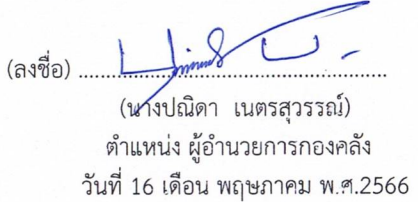 (ลงชื่อ) ................................................
(นางปณิดา เนตรสุวรรณ์)
ตำแหน่ง ผู้อำนวยการกองคลัง
วันที่ 16 เดือน พฤษภาคม พ.ศ.2566